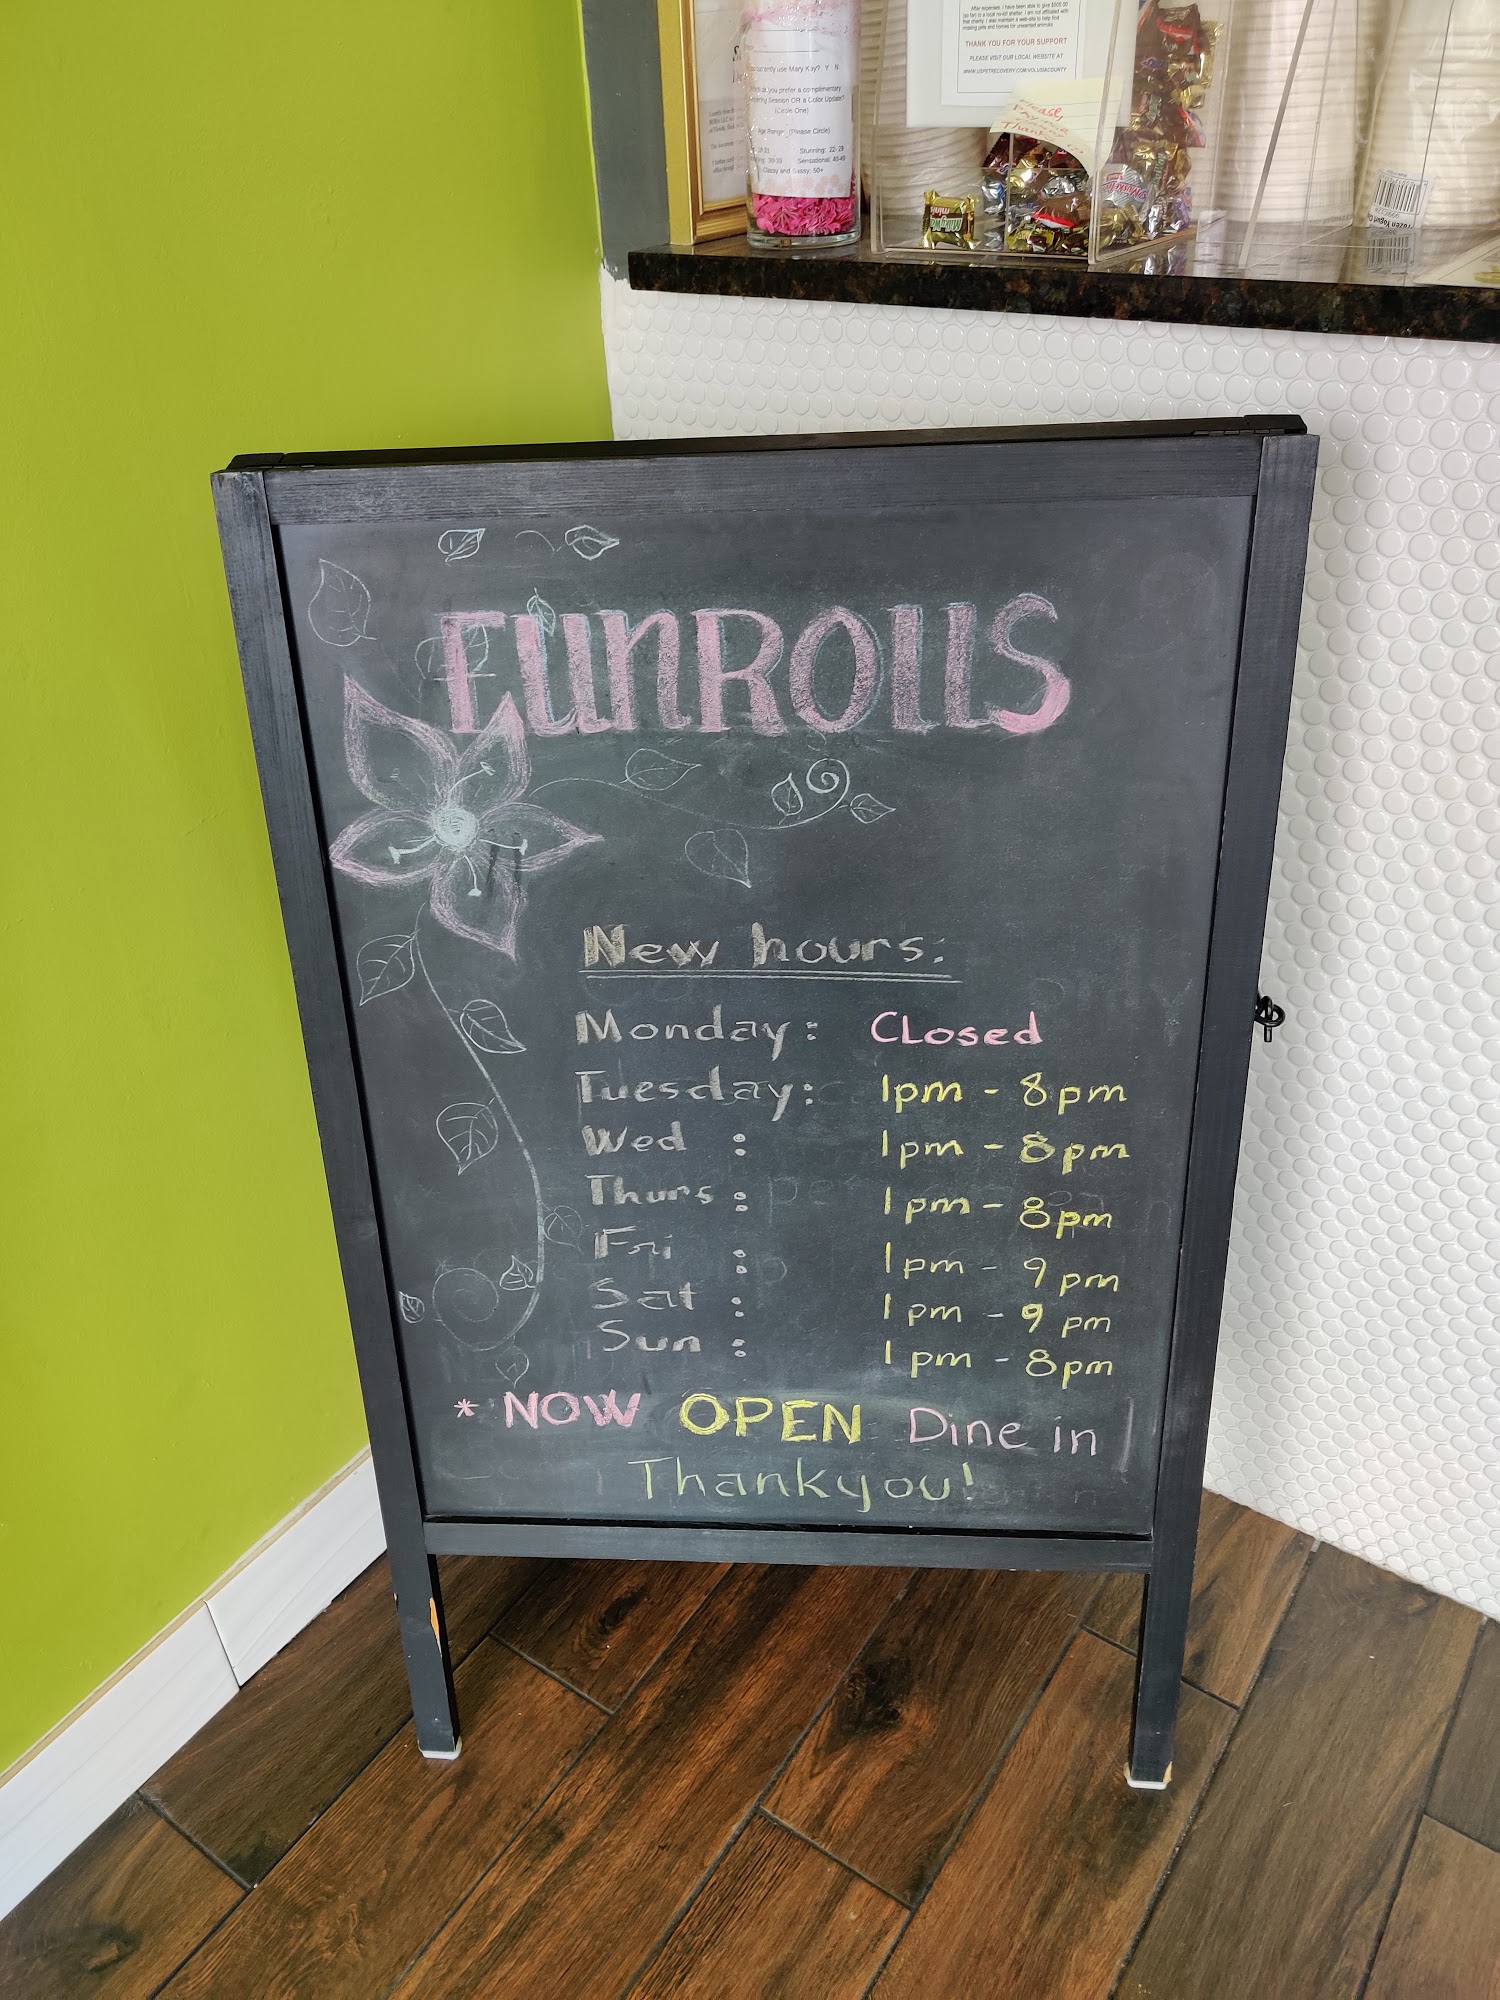 After expenses, I have been able to give $500.00
(so far) to a local no-kill shelter. I am not affiliated with
that charity. I also maintain a web-site to help find
missing pets and homes for unwanted animals
THANK YOU FOR YOUR SUPPORT
PLEASE VISIT OUR LOCAL WEBSITE AT
WWW.USPETRECOVERY.COM/VOLUSIACOUNTY
currently use Mary Kay? Y N
you prefer a complimentary
Session OR a Color Update?
(Circle One)
Age Range (Please Circle)
Stunning: 22-29
30-39 Sensational: 40-49
Classy and Sassy: 50+
Please,
Thanks
Milky Way
minis
Frozen Yogurt
FUNROllS
New hours:
Monday: CLosed
Tuesday: 1pm - 8pm
Wed : 1pm - 8pm
Thurs : 1pm - 8pm
Fri : 1pm - 9pm
Sat : 1pm - 9pm
Sun : 1pm - 8pm
* NOW OPEN Dine in
Thankyou!